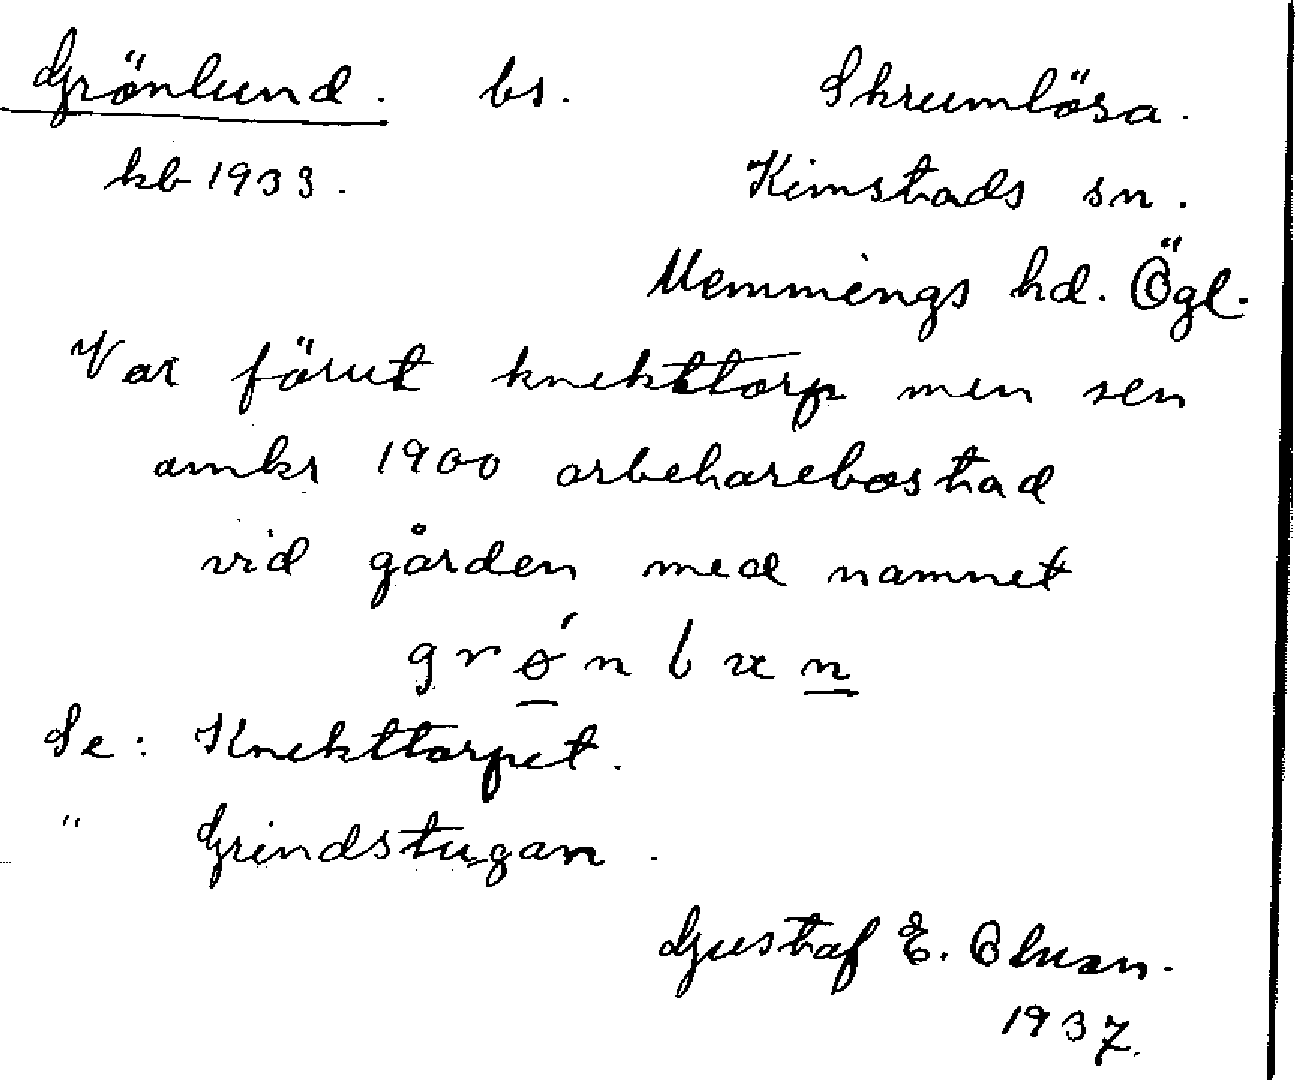 Grönlund. bs. Skrumlösa.
kb 1933. Kimstads sn.
Memmings hd. Ögl.
Var förut knekttorp men sen
omkr 1900 arbetarebostad
vid gården med namnet
Se: Knekttorpet.
" Grindstugan.
Gustaf E. Olsson.
1937.